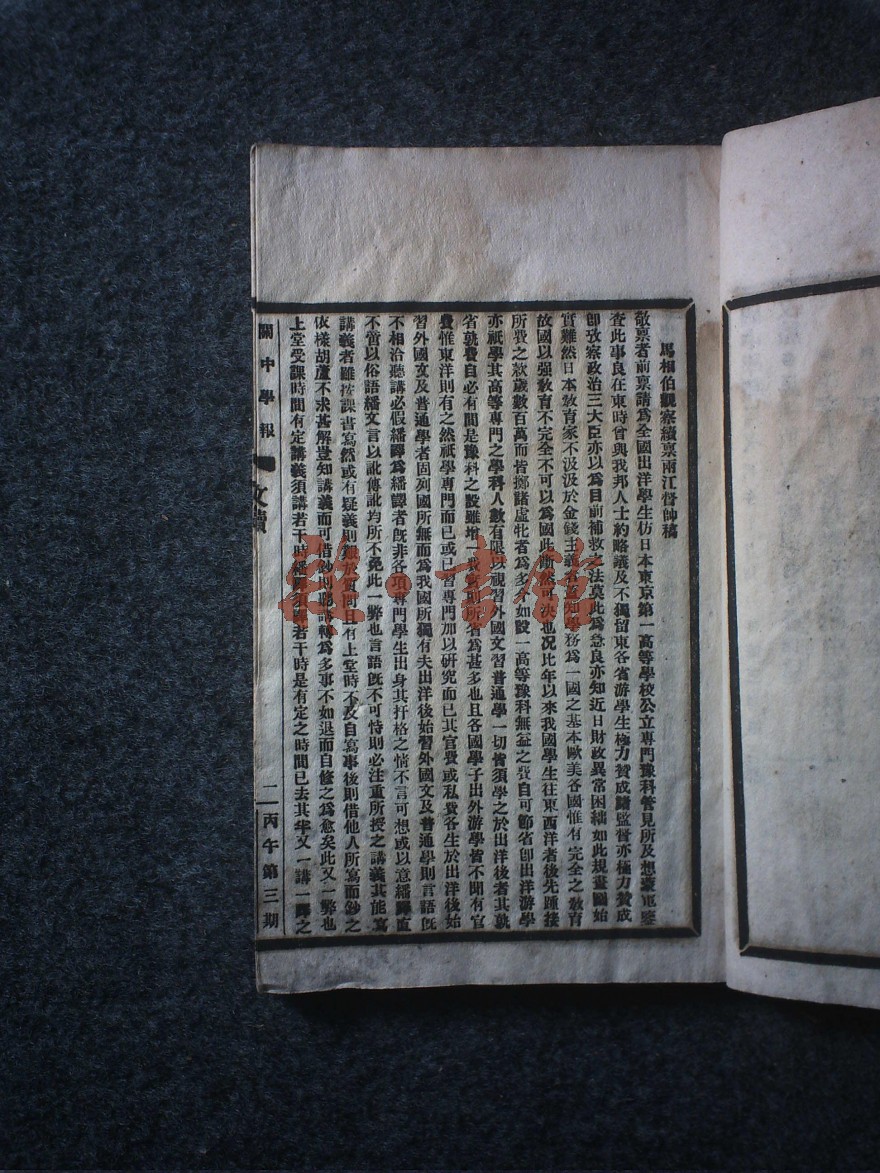 馬相伯觀察續稟兩江督帥稿
敬稟者前稟請為全國出洋學生仿日本東京第一高等學校公立專門豫科管見所及想蒙
查此事良在東時曾與我邦人士約略議及不獨留東各省游學生極力贊成諸監督亦極力贊成
即攷察政治三大臣亦以為目前補救之法莫此為急良亦知近日財政異常困絀如此規畫圖始
實難然日本教育家不汲汲於金錢主義者知學務為一國之基本歐美各國惟有完全之教育
故國以強教育不完全不可以為國此斷然可決也况比年以來我國學生往東西洋者後先踵接
所費之款歲數百萬而皆擲諸虛牝者為多今如設一高等豫科無益之費自可節省即出洋游學
亦祇學其高等專門之學科人數有限以視習外國文習普通學一切皆須學之於出洋後者其孰
省孰費自必有間是豫科之設雖增一費實則所省為甚多也且各國學子出外游學皆不聞有官
費惟東洋則有之然祇學專門而已或已習專門加以研究而已其官費或私費各生於出洋後始
習外國文及普通學者固列國所無而為我國所獨有夫出洋後始習外國文及普通學則言語既
不相洽聽講必假繙譯為繙譯者既非各項專門學生出身其扞格之情不言可想或以意繙譯直
不管以俗語繙文言以訛傳訛均所不免此一弊也言語既不可恃則必注重所授之講義其能寫
講義者雖按課書寫然或有疑義則難於質問且有上堂時不及自寫事後則借他人所寫而鈔之
依樣胡蘆不求甚解豈知講義而可借鈔則聽講轉為多事不如退而自修之為愈矣此又一弊也
上堂受課時間有定講義須講若干時繙譯須譯若干時是有定之時間已去其半又一講一譯之
關中學報 文牘 二 丙午第三期
書館